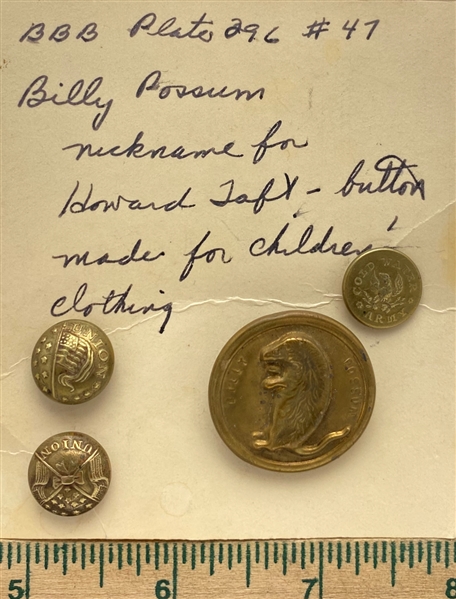 BBB Plate 296 #47
Billy Possum
nickname for
Howard Taft - button
made for children's
clothing
UNION
BILLY POSSUM
ARMY
UNION
5 6 7 8